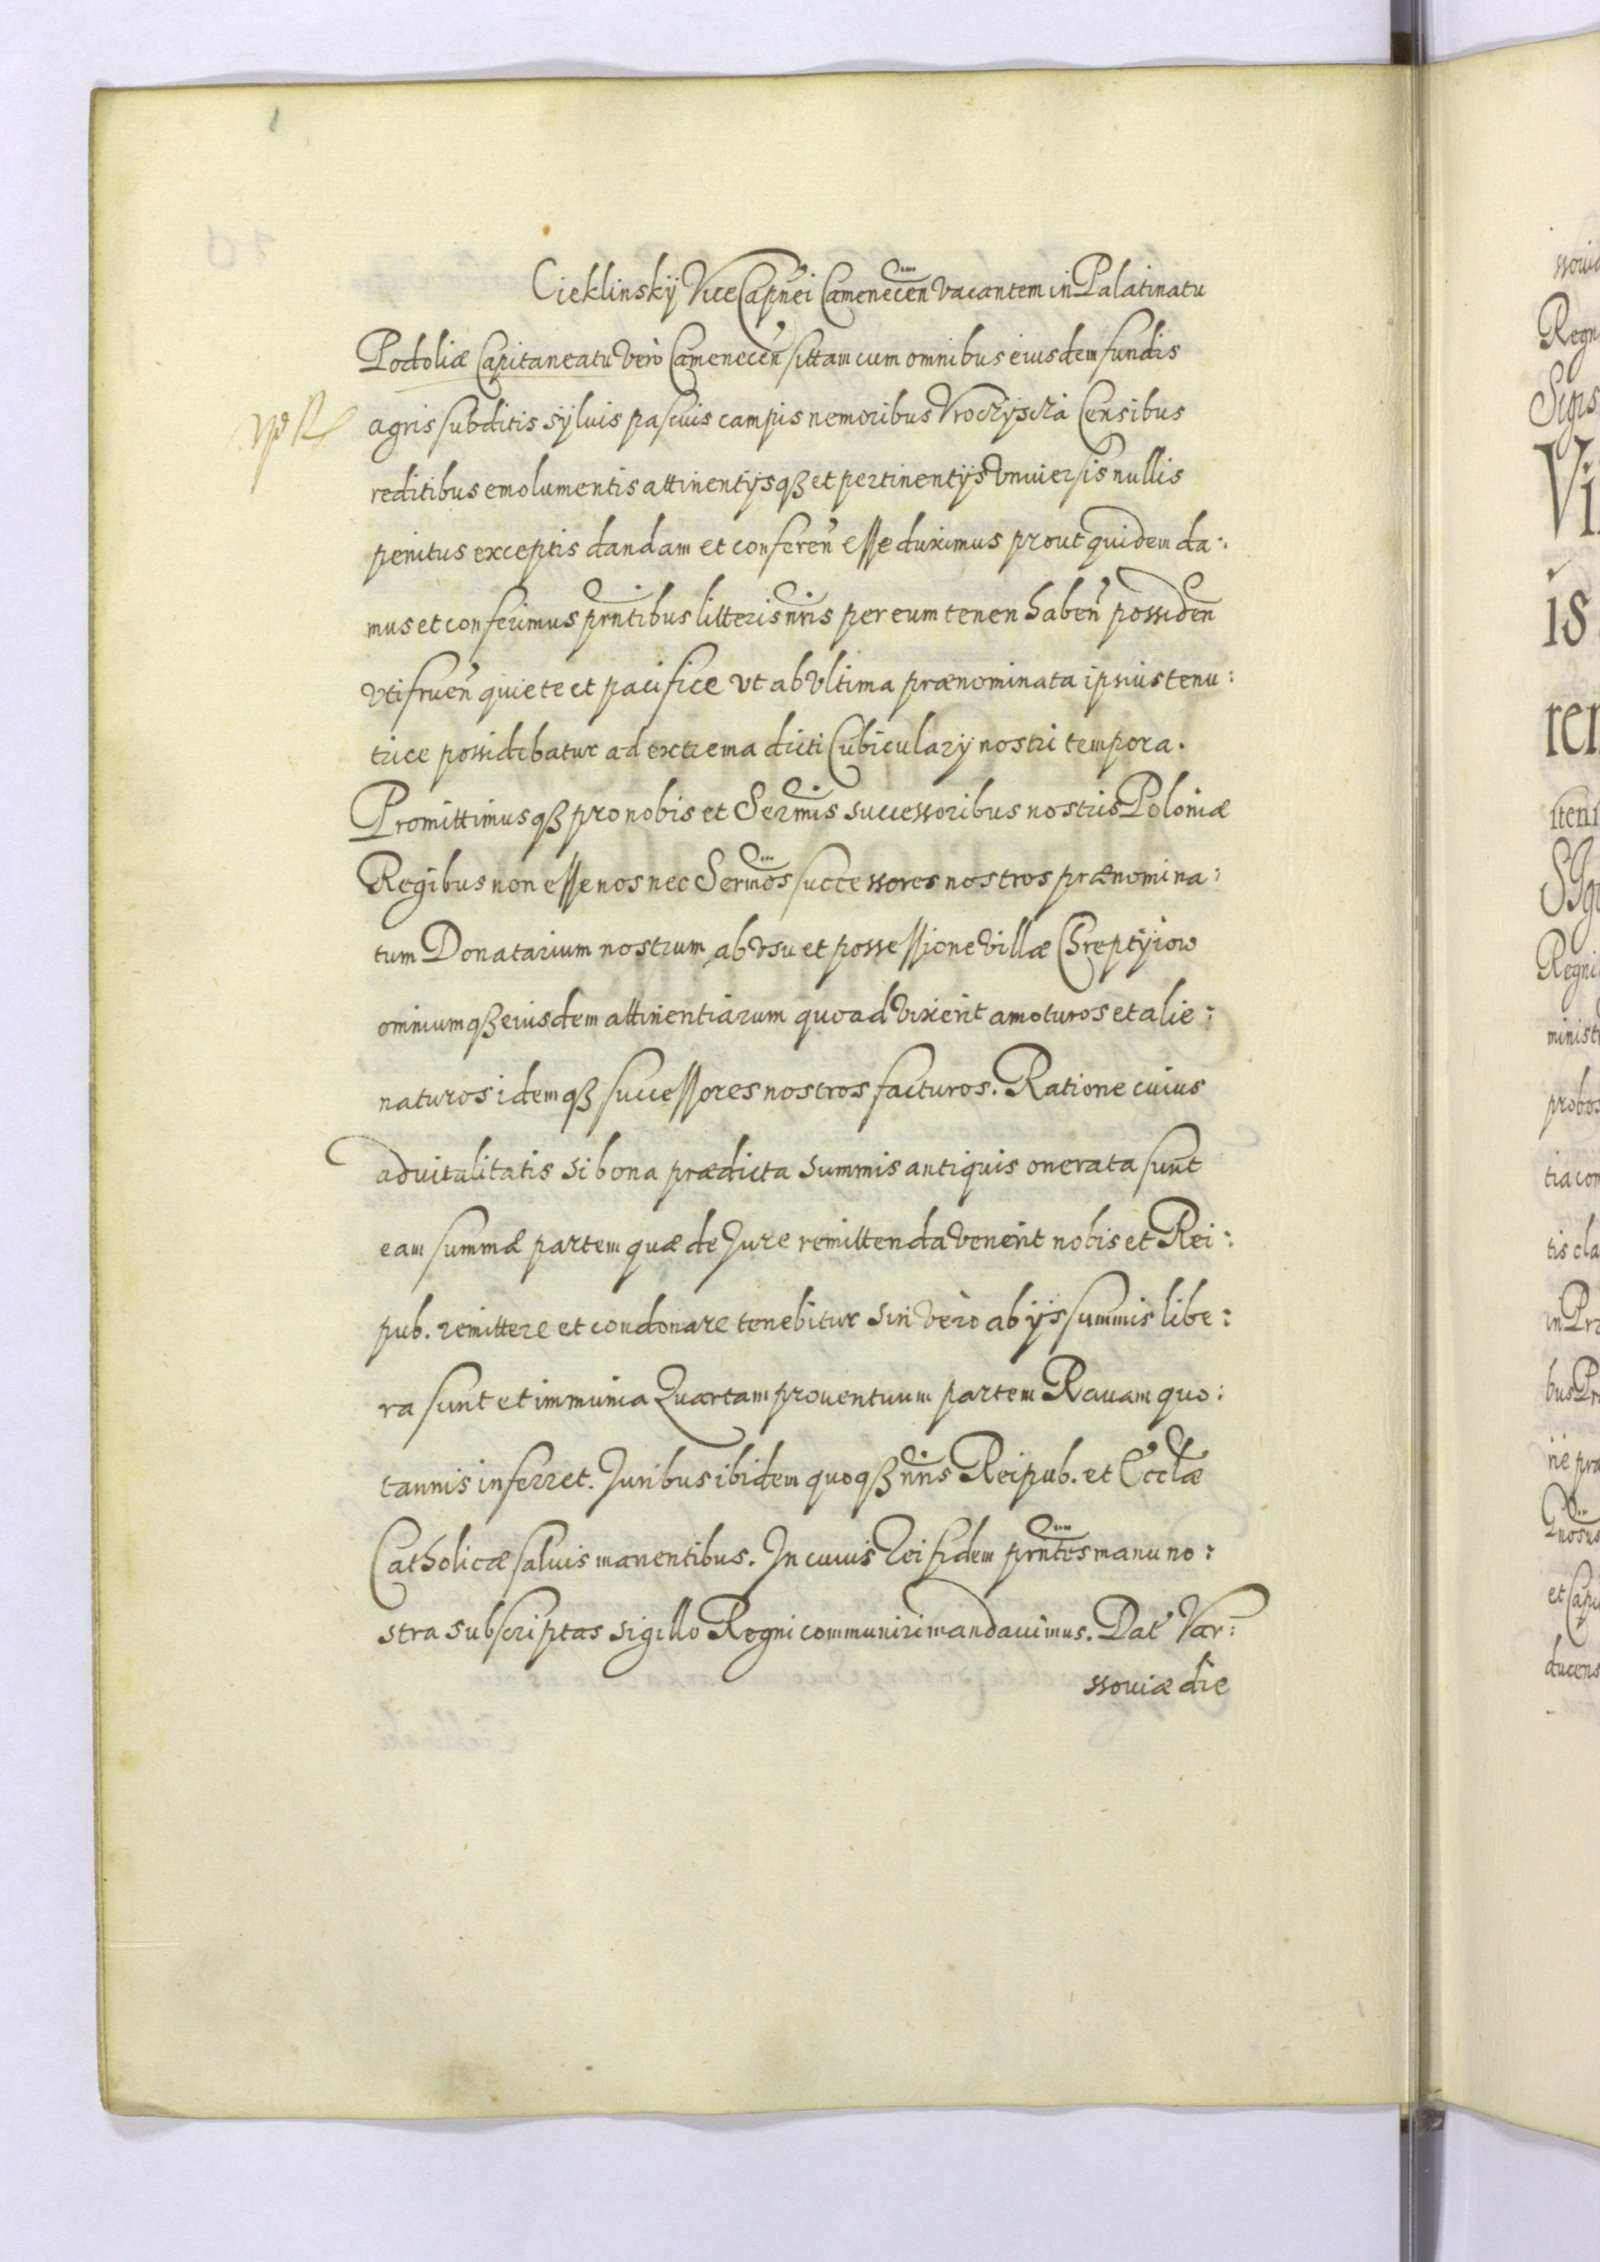 Cieklinskÿ Vice Capnei Camenecen vacantem in Palatinatu
Podoliæ Capitaneatu verò Camenecen sittam cum omnibus eiusdem fundis
agris subditis sÿluis pascuis campis nemoribus Vroczÿsczà Censibus
reditibus emolumentis attinentÿsqꝫ et pertinentÿs vniuersis nullis
penitus exceptis dandam et conferen esse duximus prout quidem da:
mus et conferimus prntibus litteris nris per eum tenen haben possiden
vtifruen quiete et pacifice vt ab vltima prænominata ipsius tenu:
trice possidebatur ad extrema dicti Cubicularÿ nostri tempora.
Promittimusqꝫ pro nobis et Sermis successoribus nostris Poloniæ
Regibus non esse nos nec Sermos successores nostros prænomina:
tum Donatarium nostrum ab vsu et possessione villæ Chreptÿiow
omniumqꝫ eiusdem attinentiarum quoad vixerit amoturos et alie:
naturos idemqꝫ successores nostros facturos. Ratione cuius
aduitalitatis si bona prædicta summis antiquis onerata sunt
eam summæ partem quæ de Jure remittenda venerit nobis et Rei:
pub. remittere et condonare tenebitur sin verò ab ÿs summis libe:
ra sunt et immunia Quartam prouentuum partem Rauam quo:
tannis inferret. Juribus ibidem quoqꝫ nris Reipub. et Ecclæ
Catholicæ saluis manentibus. In cuius rei fidem prntes manu no:
stra subscriptas sigillo Regni communiri mandauimus. Dat Var:
ssouiæ die